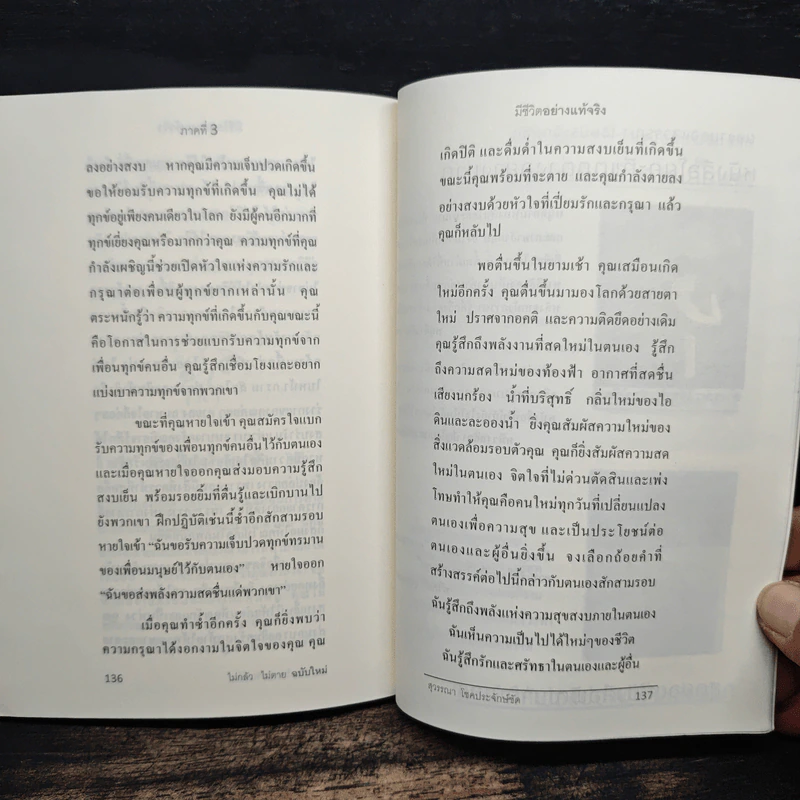 ภาคที่ 3
ลงอย่างสงบ หากคุณมีความเจ็บปวดเกิดขึ้น
ขอให้ยอมรับความทุกข์ที่เกิดขึ้น คุณไม่ได้
ทุกข์อยู่เพียงคนเดียวในโลก ยังมีผู้คนอีกมากที่
ทุกข์เยี่ยงคุณหรือมากกว่าคุณ ความทุกข์ที่คุณ
กำลังเผชิญนี้ช่วยเปิดหัวใจแห่งความรักและ
กรุณาต่อเพื่อนผู้ทุกข์ยากเหล่านั้น คุณ
ตระหนักรู้ว่า ความทุกข์ที่เกิดขึ้นกับคุณขณะนี้
คือโอกาสในการช่วยแบกรับความทุกข์จาก
เพื่อนทุกข์คนอื่น คุณรู้สึกเชื่อมโยงและอยาก
แบ่งเบาความทุกข์จากพวกเขา
ขณะที่คุณหายใจเข้า คุณสมัครใจแบก
รับความทุกข์ของเพื่อนทุกข์คนอื่นไว้กับตนเอง
และเมื่อคุณหายใจออกคุณส่งมอบความรู้สึก
สงบเย็น พร้อมรอยยิ้มที่ตื่นรู้และเบิกบานไป
ยังพวกเขา ฝึกปฏิบัติเช่นนี้ซ้ำอีกสักสามรอบ
หายใจเข้า “ฉันขอรับความเจ็บปวดทุกข์ทรมาน
ของเพื่อนมนุษย์ไว้กับตนเอง” หายใจออก
“ฉันขอส่งพลังความสดชื่นแด่พวกเขา”
เมื่อคุณทำซ้ำอีกครั้ง คุณก็ยิ่งพบว่า
ความกรุณาได้งอกงามในจิตใจของคุณ คุณ
136 ไม่กลัว ไม่ตาย ฉบับใหม่
มีชีวิตอย่างแท้จริง
เกิดปิติ และดื่มด่ำในความสงบเย็นที่เกิดขึ้น
ขณะนี้คุณพร้อมที่จะตาย และคุณกำลังตายลง
อย่างสงบด้วยหัวใจที่เปี่ยมรักและกรุณา แล้ว
คุณก็หลับไป
พอตื่นขึ้นในยามเช้า คุณเสมือนเกิด
ใหม่อีกครั้ง คุณตื่นขึ้นมามองโลกด้วยสายตา
ใหม่ ปราศจากอคติ และความติดยึดอย่างเดิม
คุณรู้สึกถึงพลังงานที่สดใหม่ในตนเอง รู้สึก
ถึงความสดใหม่ของท้องฟ้า อากาศที่สดชื่น
เสียงนกร้อง น้ำที่บริสุทธิ์ กลิ่นใหม่ของไอ
ดินและละอองน้ำ ยิ่งคุณสัมผัสความใหม่ของ
สิ่งแวดล้อมรอบตัวคุณ คุณก็ยิ่งสัมผัสความสด
ใหม่ในตนเอง จิตใจที่ไม่ด่วนตัดสินและเพ่ง
โทษทำให้คุณคือคนใหม่ทุกวันที่เปลี่ยนแปลง
ตนเองเพื่อความสุข และเป็นประโยชน์ต่อ
ตนเองและผู้อื่นยิ่งขึ้น จงเลือกถ้อยคำที่
สร้างสรรค์ต่อไปนี้กล่าวกับตนเองสักสามรอบ
ฉันรู้สึกถึงพลังแห่งความสุขสงบภายในตนเอง
ฉันเห็นความเป็นไปได้ใหม่ๆของชีวิต
ฉันรู้สึกรักและศรัทธาในตนเองและผู้อื่น
สุวรรณา โชคประจักษ์ชัด 137